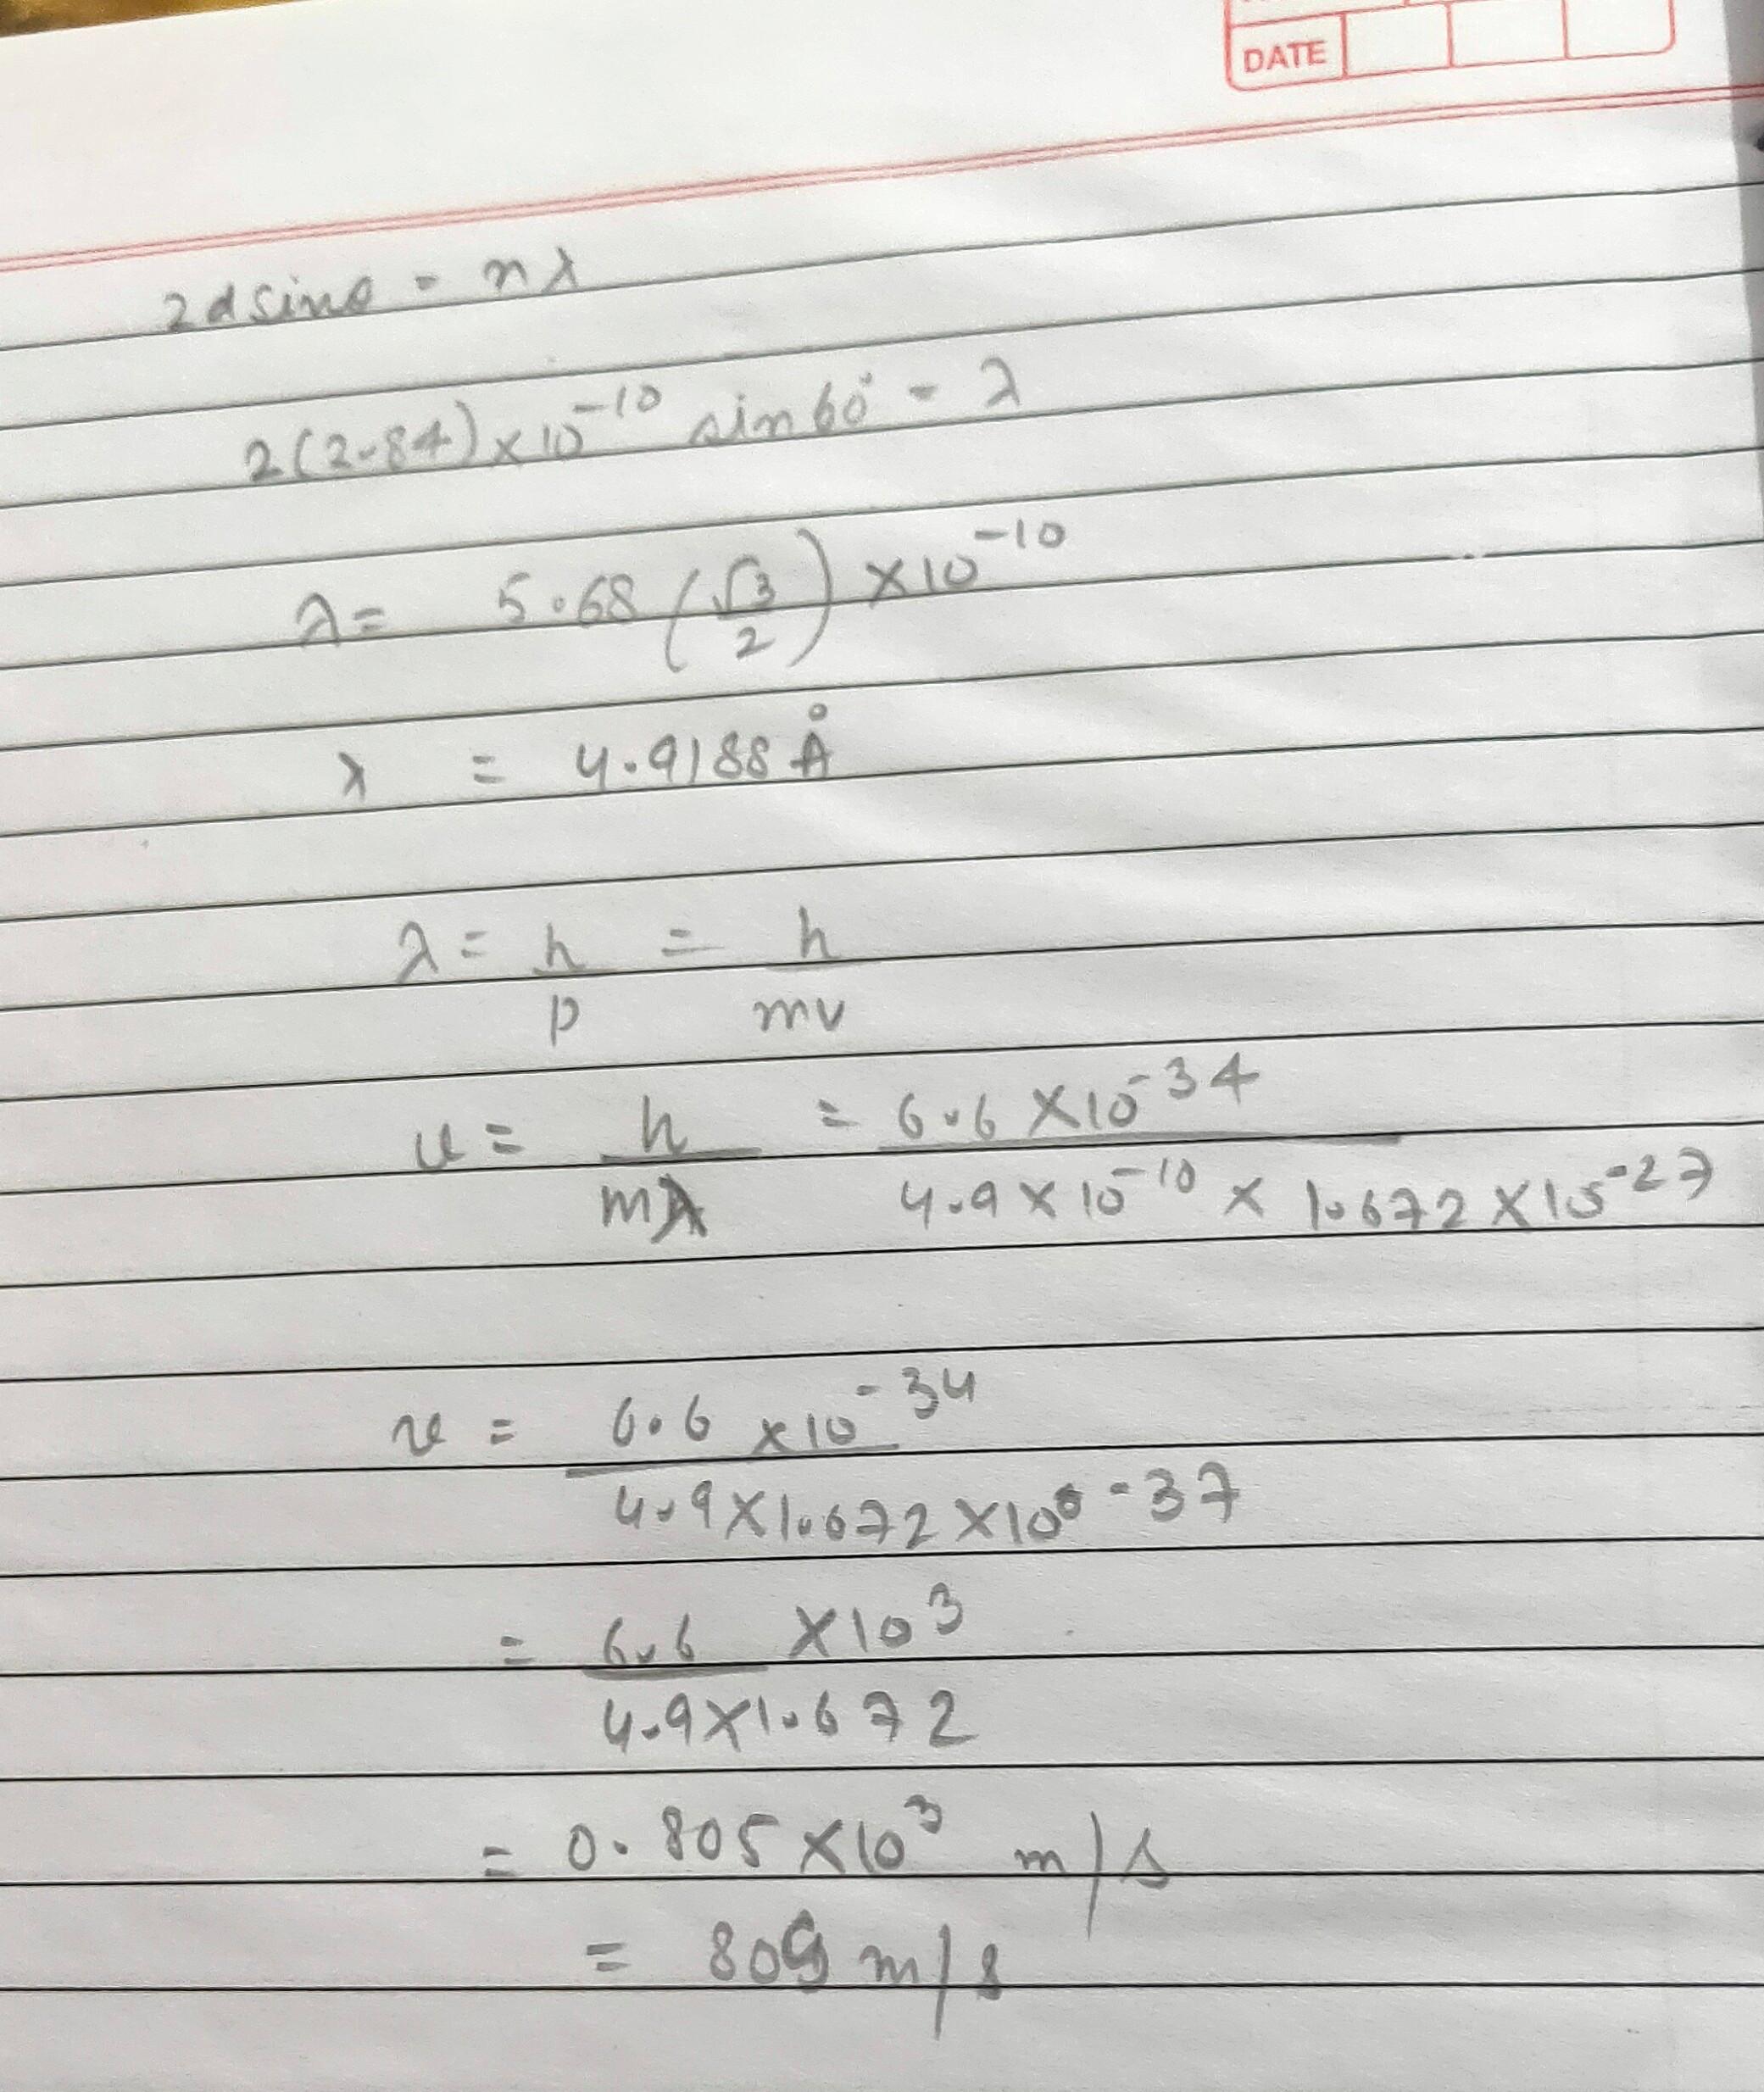 DATE
2dsinθ = nλ
2(2.84)×10^-10 sin60° = λ
λ = 5.68 (√3/2) ×10^-10
λ = 4.9188 Å
λ = h/p = h/mv
v = h/mλ = 6.6 ×10^-34 / 4.9×10^-10 × 1.672 ×10^-27
v = 6.6 ×10^-34 / 4.9×1.672 ×10^-37
= 6.6 ×10^3 / 4.9×1.672
= 0.805 ×10^3 m/s
= 805 m/s